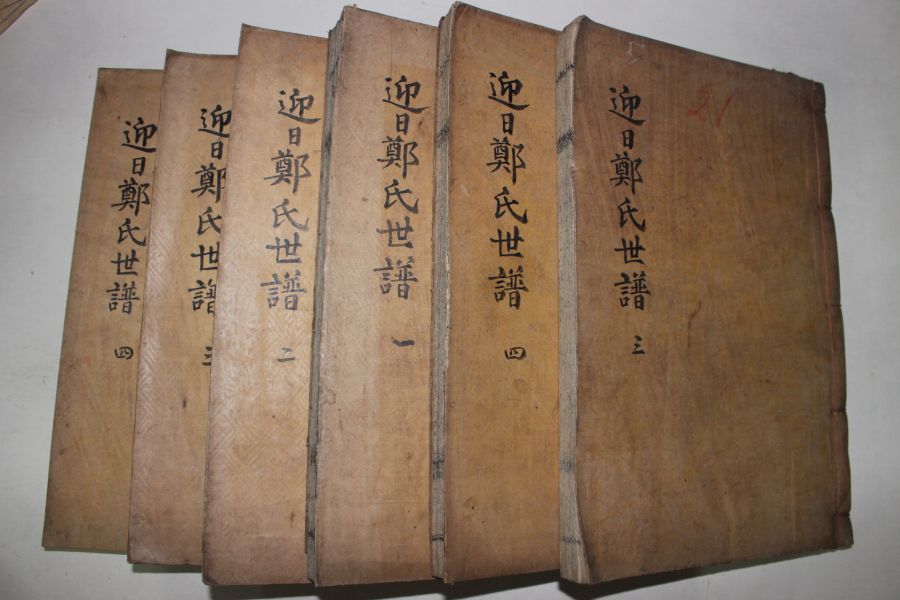 迎日鄭氏世譜 三
21
迎日鄭氏世譜 四
迎日鄭氏世譜 一
迎日鄭氏世譜 二
迎日鄭氏世譜 三
迎日鄭氏世譜 四